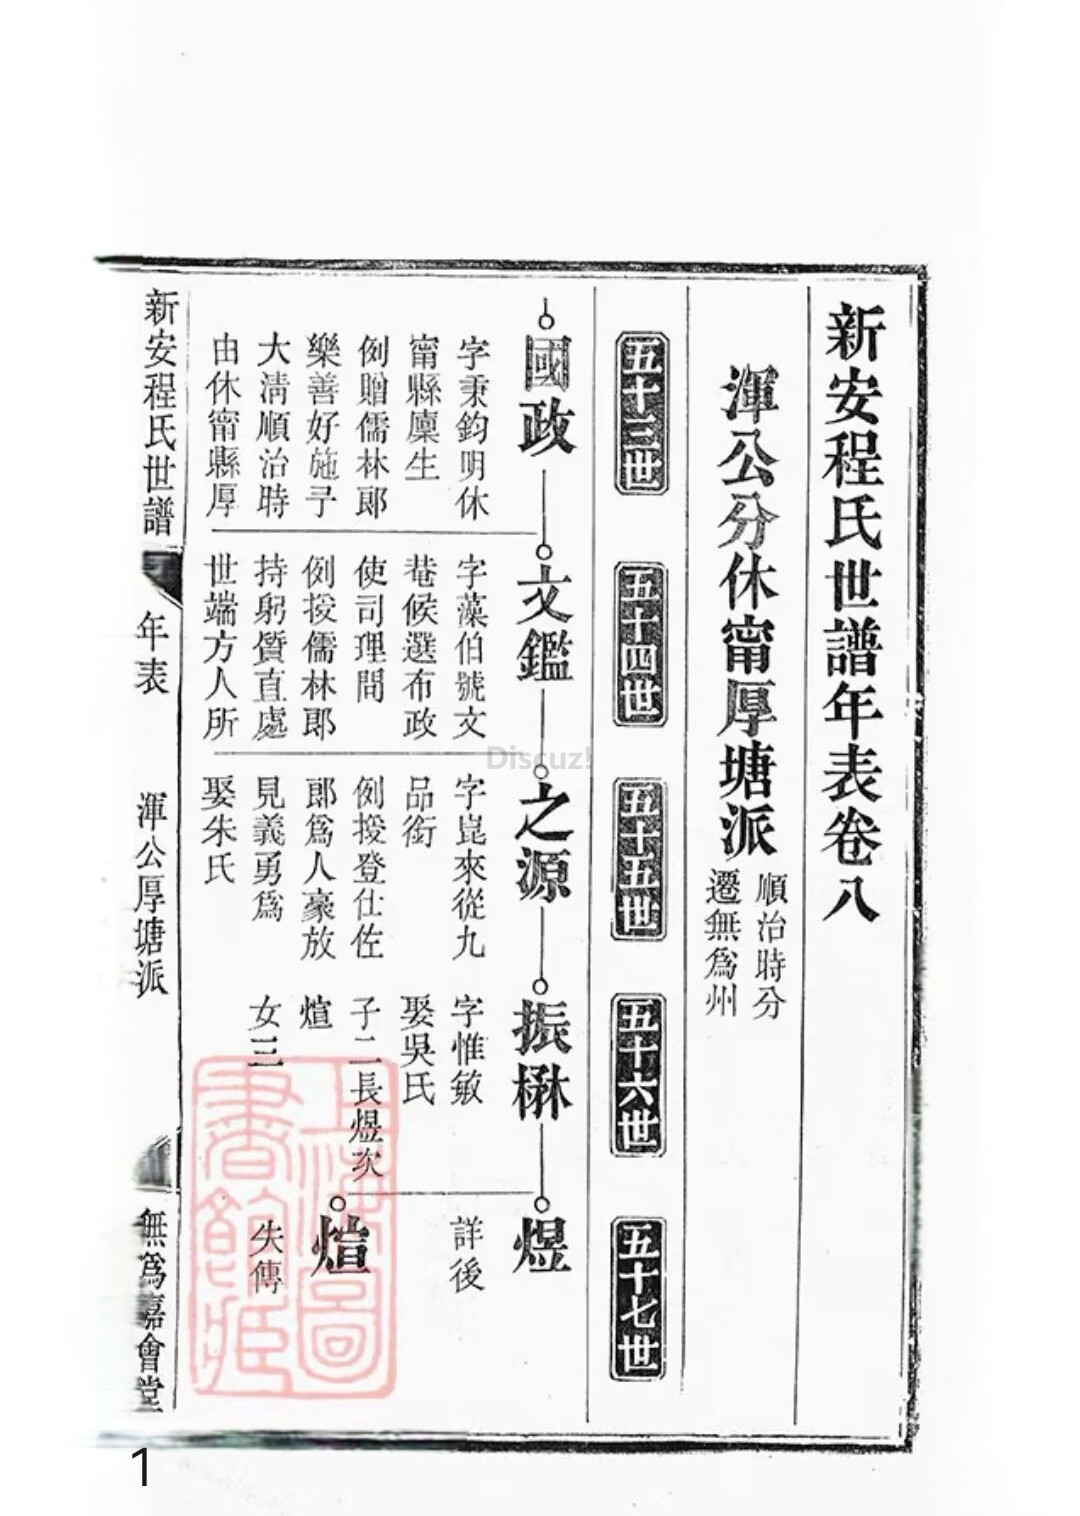 新安程氏世譜年表卷八
渾公分休甯厚塘派
順治時分
遷無爲州
五十三世
五十四世
五十五世
五十六世
五十七世
國政
字秉鈞明休
甯縣廩生
例贈儒林郎
樂善好施予
大清順治時
由休甯縣厚
文鑑
字藻伯號文
菴候選布政
使司理間
例授儒林郎
持躬質直處
世端方人所
之源
字崑來從九
品銜
例授登仕佐
郎爲人豪放
見義勇爲
娶朱氏
振楙
字惟敏
娶吳氏
子二長煜次
煊
女三
煜
詳後
煊
失傳
新安程氏世譜
年表
渾公厚塘派
無爲嘉會堂
上海圖
書館藏
Discuz!
1